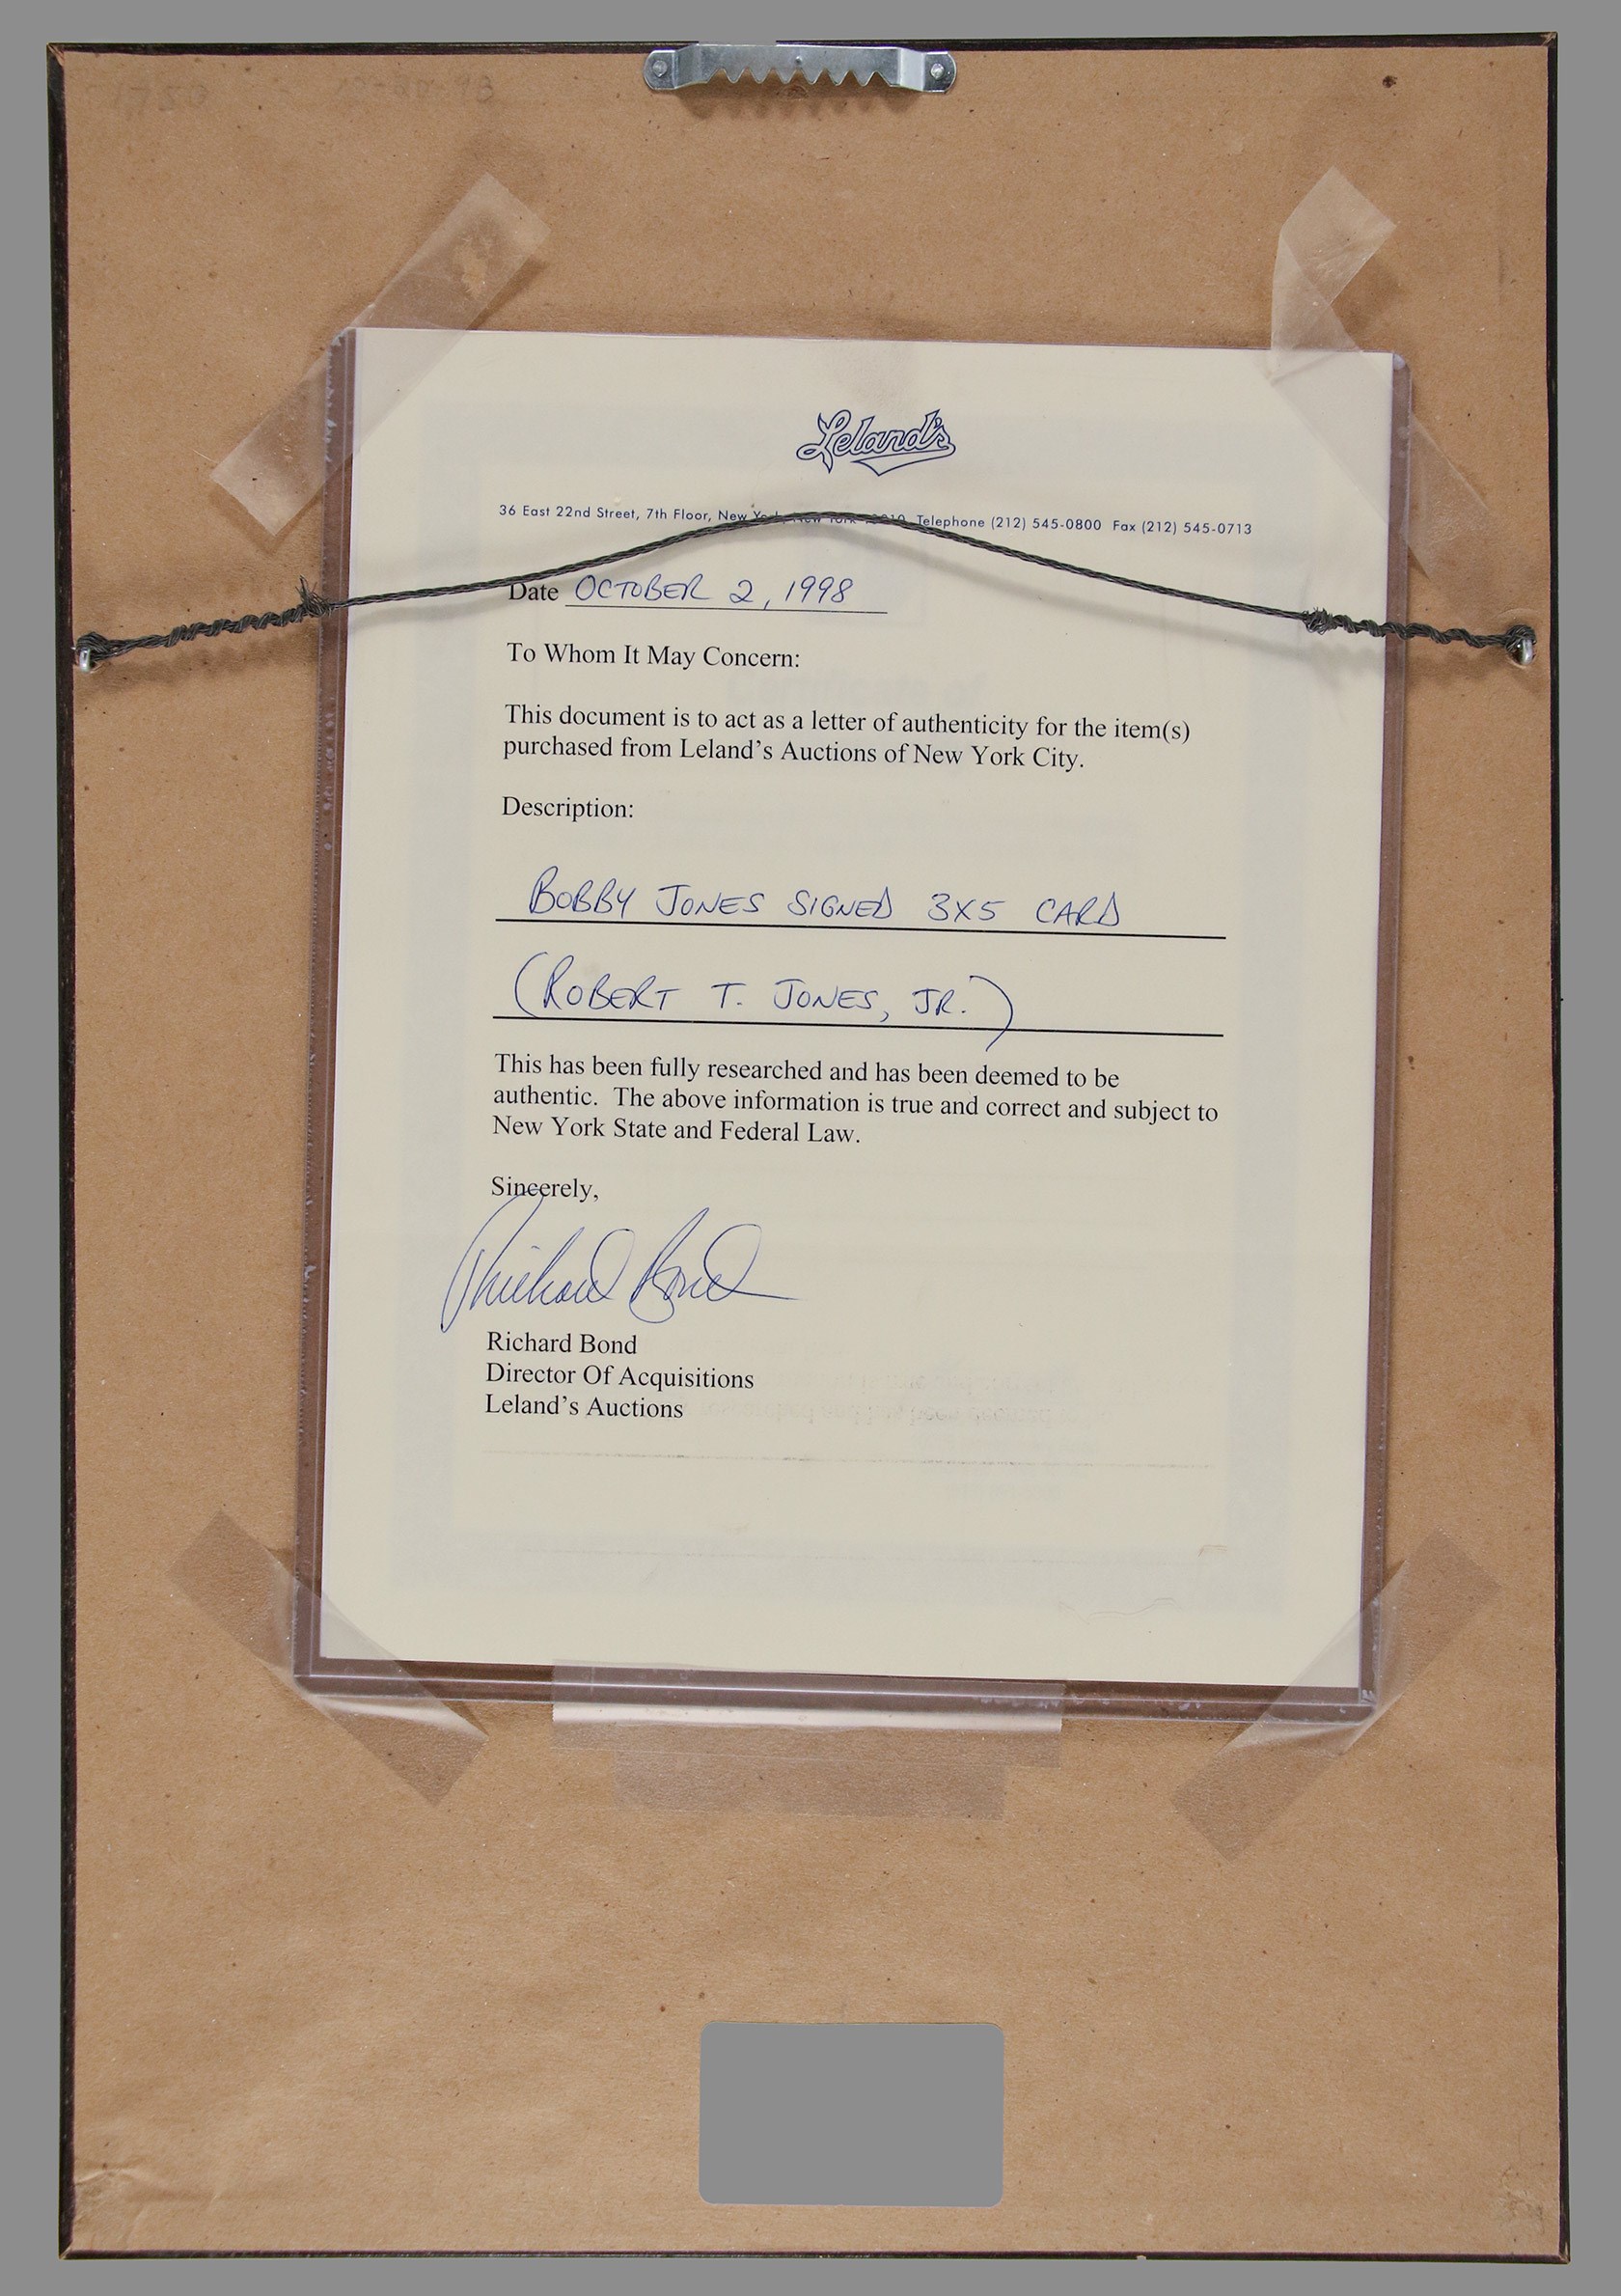 Leland's
36 East 22nd Street, 7th Floor, New York, New York 10010 Telephone (212) 545-0800 Fax (212) 545-0713
Date OCTOBER 2, 1998
To Whom It May Concern:
This document is to act as a letter of authenticity for the item(s)
purchased from Leland's Auctions of New York City.
Description:
BOBBY JONES SIGNED 3X5 CARD
(ROBERT T. JONES, JR.)
This has been fully researched and has been deemed to be
authentic. The above information is true and correct and subject to
New York State and Federal Law.
Sincerely,
Richard Bond
Richard Bond
Director Of Acquisitions
Leland's Auctions